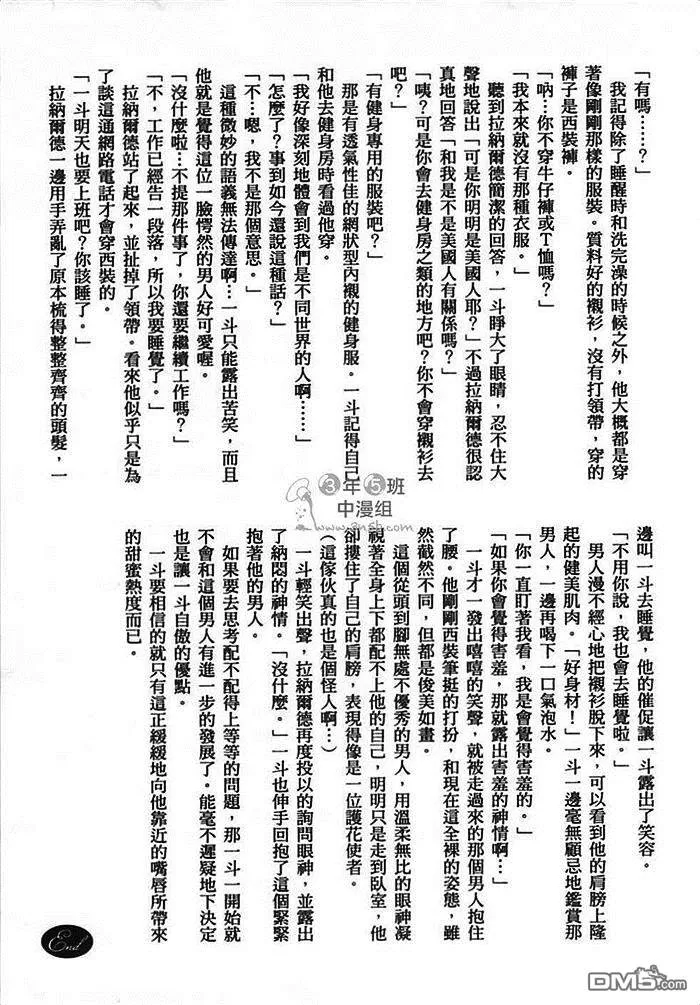 「有嗎……？」
我記得除了睡醒時和洗完澡的時候之外，他大概都是穿
著像剛剛那樣的服裝。質料好的襯衫，沒有打領帶，穿的
褲子是西裝褲。
「吶…你不穿牛仔褲或T恤嗎？」
「我本來就沒有那種衣服。」
聽到拉納爾德簡潔的回答，一斗睜大了眼睛，忍不住大
聲地說出「可是你明明是美國人耶？」不過拉納爾德很認
真地回答「和我是不是美國人有關係嗎？」
「咦？可是你會去健身房之類的地方吧？你不會穿襯衫去
吧？」
「有健身專用的服裝吧？」
那是有透氣性佳的網狀型內襯的健身服。一斗記得自己
和他去健身房時看過他穿。
「我好像深刻地體會到我們是不同世界的人啊……」
「怎麼了？事到如今還說這種話？」
「不…嗯，我不是那個意思。」
這種微妙的語義無法傳達啊…一斗只能露出苦笑，而且
他就是覺得這位一臉愕然的男人好可愛喔。
「沒什麼啦…不提那件事了，你還要繼續工作嗎？」
「不，工作已經告一段落，所以我要睡覺了。」
拉納爾德站了起來，並扯掉了領帶。看來他似乎只是為
了談這通網路電話才會穿西裝的。
「一斗明天也要上班吧？你該睡了。」
拉納爾德一邊用手弄亂了原本梳得整整齊齊的頭髮，一
邊叫一斗去睡覺，他的催促讓一斗露出了笑容。
「不用你說，我也會去睡覺啦。」
男人漫不經心地把襯衫脫下來，可以看到他的肩膀上隆
起的健美肌肉。「好身材！」一斗一邊毫無顧忌地鑑賞那
男人，一邊再喝下一口氣泡水。
「你一直盯著我看，我是會覺得害羞的。」
「如果你會覺得害羞，那就露出害羞的神情啊…」
一斗才一發出嘻嘻的笑聲，就被走過來的那個男人抱住
了腰。他剛剛西裝筆挺的打扮，和現在這全裸的姿態，雖
然截然不同，但都是俊美如畫。
這個從頭到腳無處不優秀的男人，用溫柔無比的眼神凝
視著全身上下都配不上他的自己，明明只是走到臥室，他
卻摟住了自己的肩膀，表現得像是一位護花使者。
（這傢伙真的也是個怪人啊…）
一斗輕笑出聲，拉納爾德再度投以的詢問眼神，並露出
了納悶的神情。「沒什麼。」一斗也伸手回抱了這個緊緊
抱著他的男人。
如果要去思考配不配得上等等的問題，那一斗一開始就
不會和這個男人有進一步的發展了。能毫不遲疑地下決定
也是讓一斗自傲的優點。
一斗要相信的就只有這正緩緩地向他靠近的嘴唇所帶來
的甜蜜熱度而已。
End
3年5班
中漫组
www.3n5b.com
DM5.com